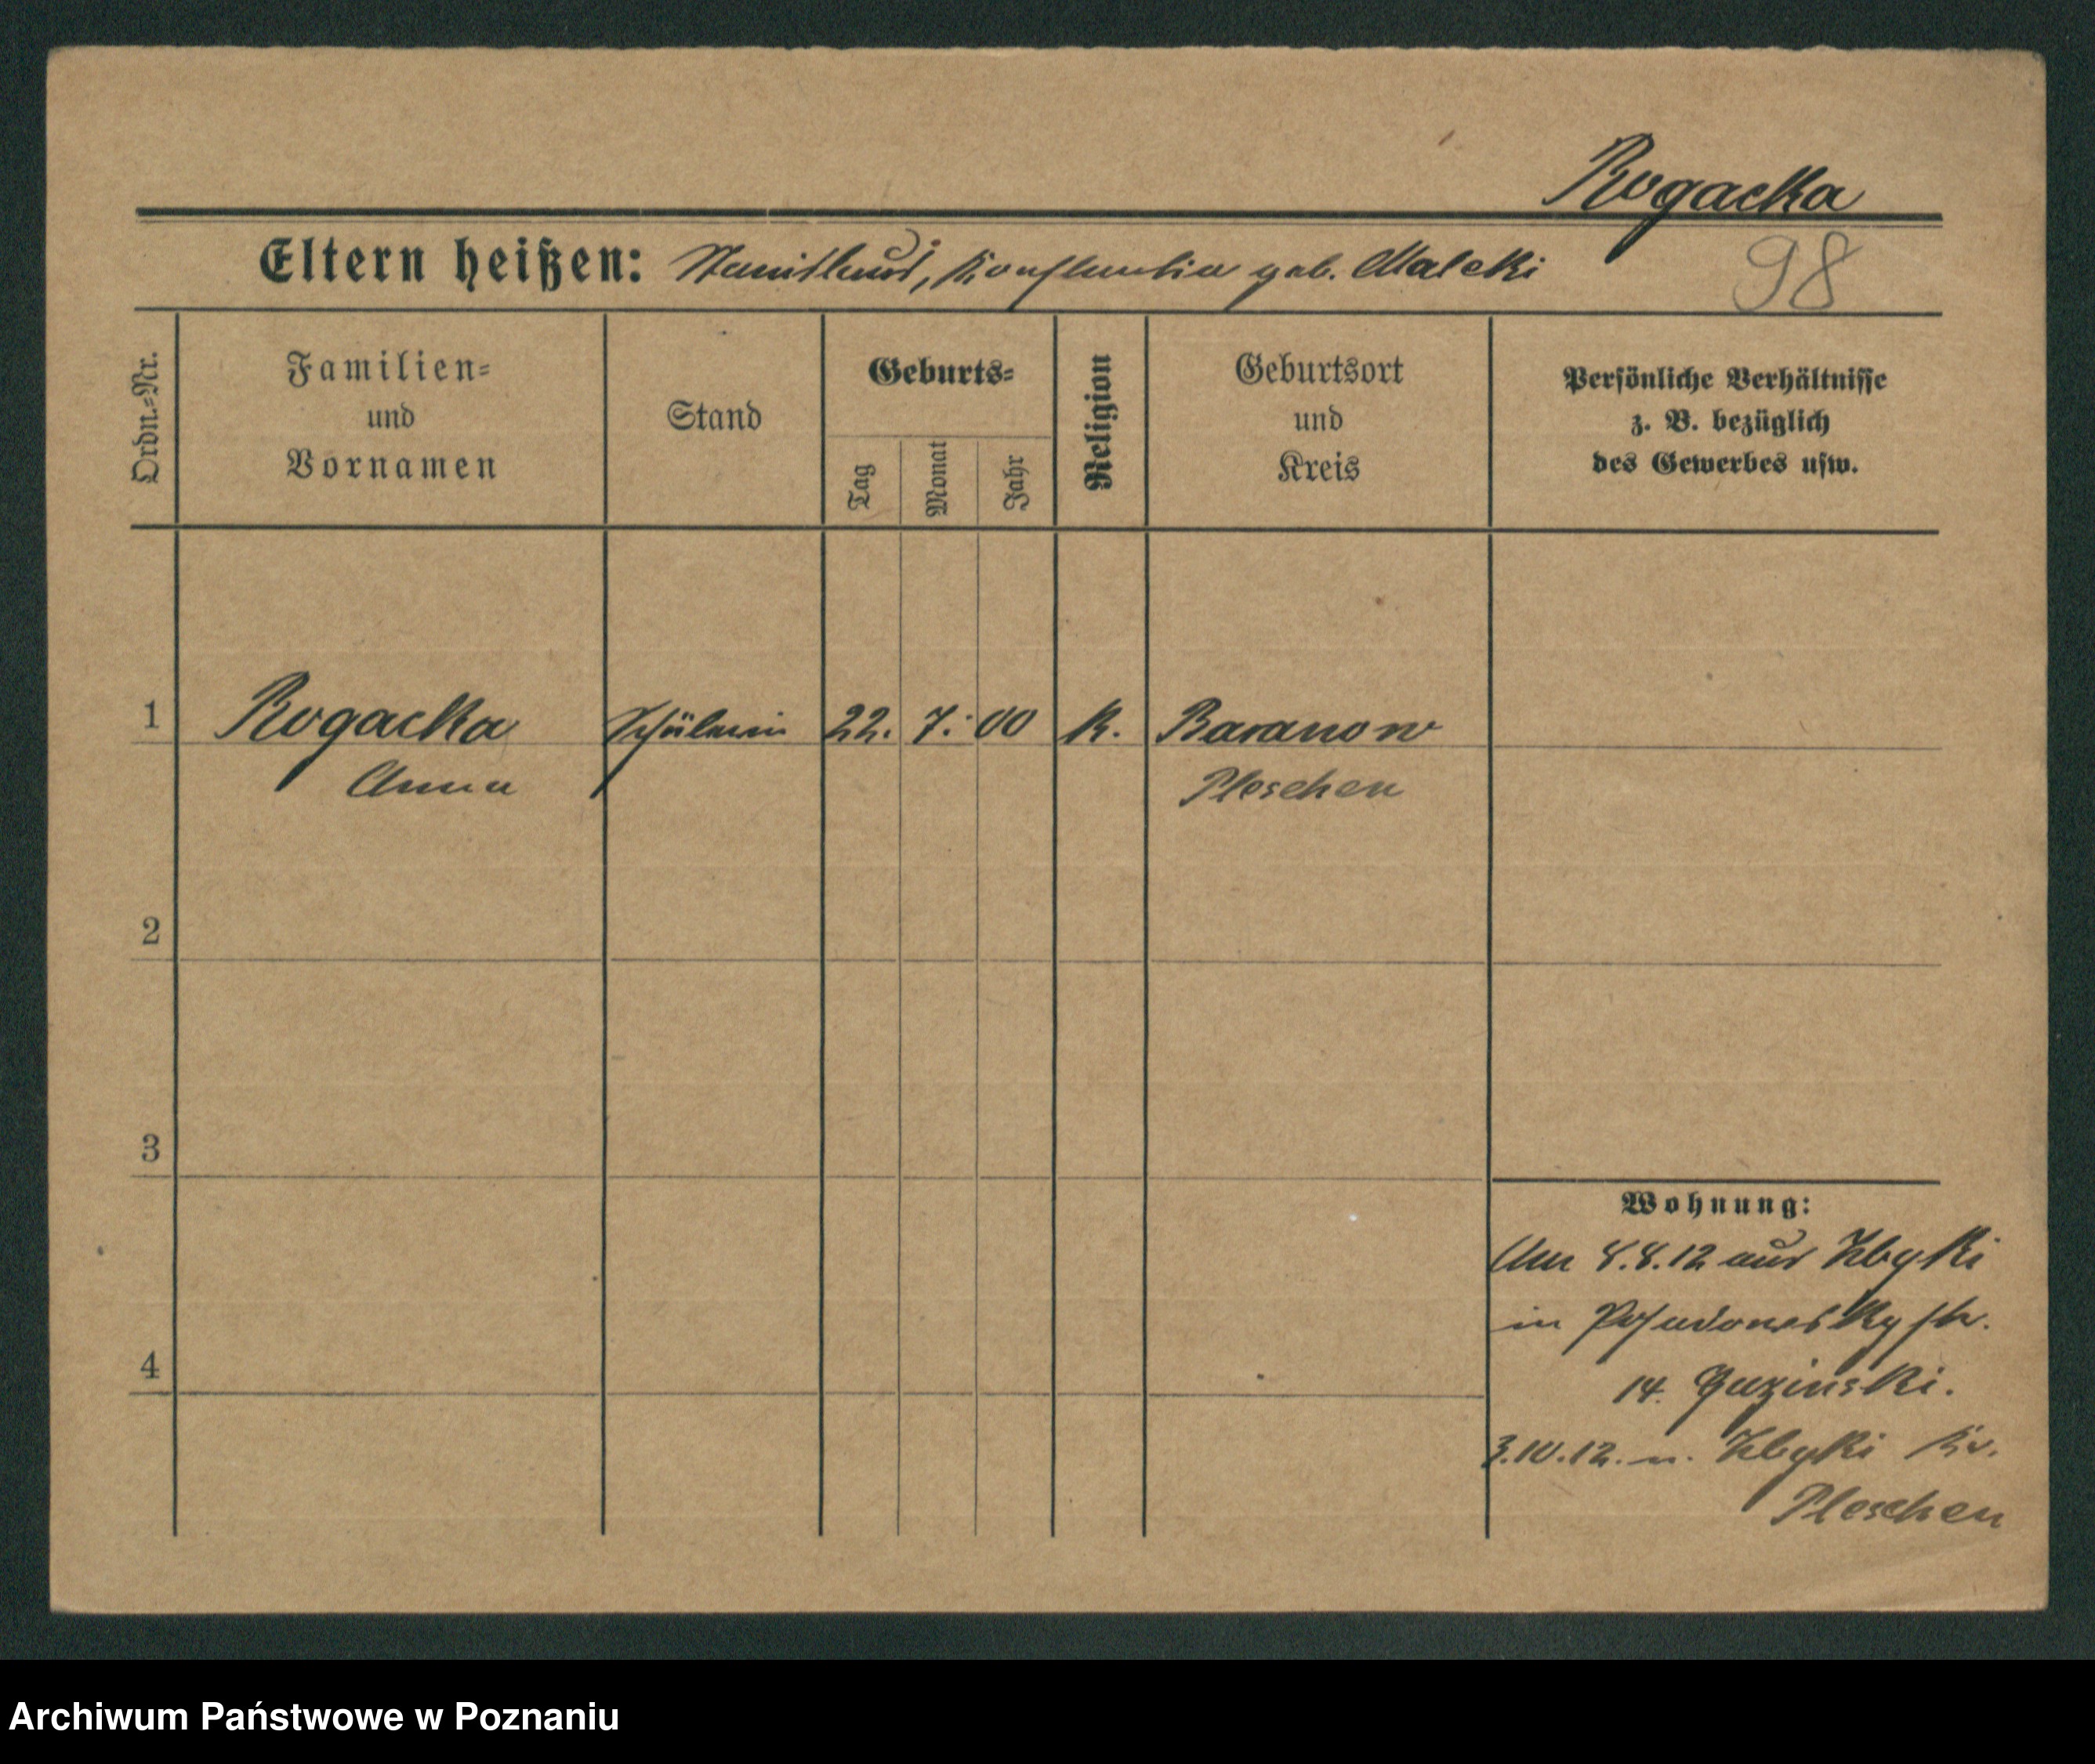 Rogacka
Eltern heißen: Stanislaus, Konstantia geb. Malcki
98
Ordn.=Nr.
Familien=
und
Vornamen
Stand
Geburts=
Tag
Monat
Jahr
Religion
Geburtsort
und
Kreis
Persönliche Verhältnisse
z. B. bezüglich
des Gewerbes usw.
1 Rogacka Schülerin 22. 7. 00 K. Baranow
Anna Pleschen
2
3
4
Wohnung:
Am 8.8.12 aus Zbyki
in Posadowskystr.
14.
3.10.12. n. Zbyki Kr.
Pleschen
Archiwum Państwowe w Poznaniu